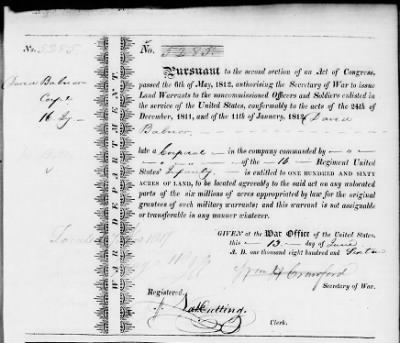 No. 5285
No. 5285
Pursuant to the second section of an Act of Congress,
passed the 6th of May, 1812, authorising the Secretary of War to issue
Land Warrants to the noncommissioned Officers and Soldiers enlisted in
the service of the United States, conformably to the acts of the 24th of
December, 1811, and of the 11th of January, 1812, David
16 Inf
late a Corporal in the company commanded by
of the 16 Regiment United
States' Infantry is entitled to ONE HUNDRED AND SIXTY
ACRES OF LAND, to be located agreeably to the said act on any unlocated
parts of the six millions of acres appropriated by law for the original
grantees of such military warrants; and this warrant is not assignable
or transferable in any manner whatever.
WAR DEPARTMENT
GIVEN at the War Office of the United States,
this 13 day of June
A. D. one thousand eight hundred and Sixteen
Wm H Crawford
Secretary of War.
Registered
Nat Cutting
Clerk.